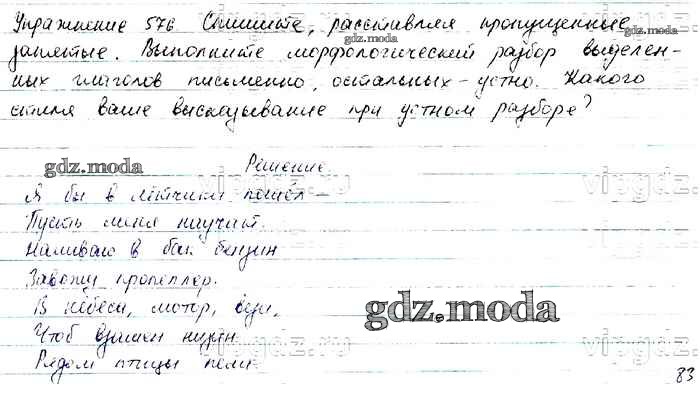 Упражнение 576 Спишите, расставляя пропущенные
запятые. Выполните морфологический разбор выделен-
ных глаголов письменно, остальных - устно. Какого
стиля ваше высказывание при устном разборе?
gdz.moda
gdz.moda
Решение
Я бы в лётчики пошёл -
Пусть меня научат.
Наливаю в бак бензин
Завожу пропеллер.
В небеса, мотор, вези,
Чтоб взамен низин
Рядом птицы пели.
gdz.moda
83